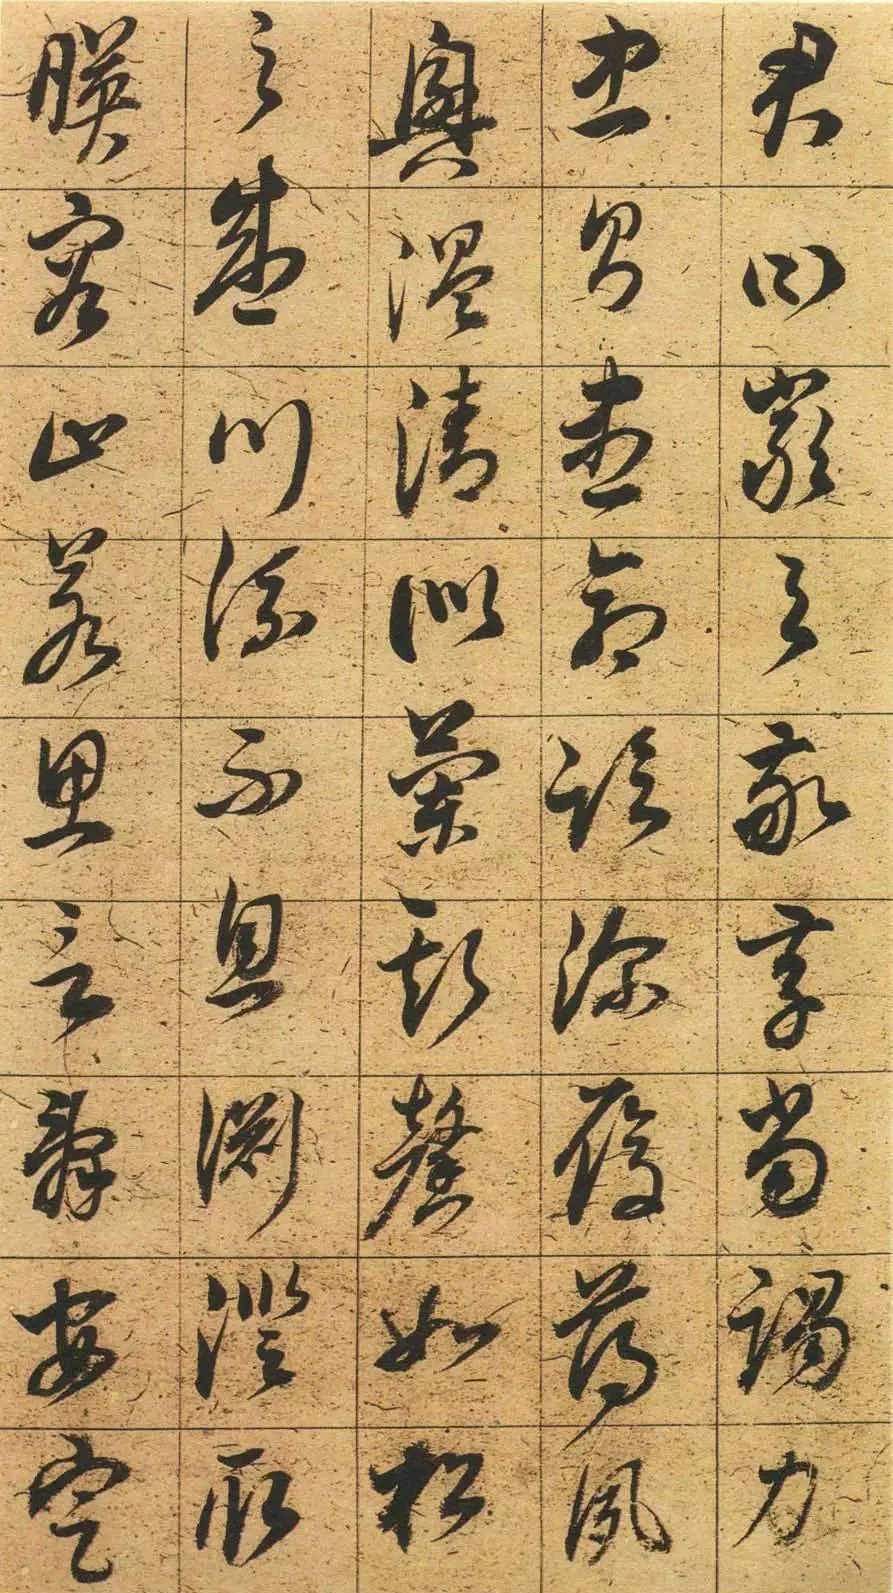 君曰嚴与敬孝當竭力
忠則盡命臨深履薄夙
興溫凊似蘭斯馨如松
之盛川流不息淵澄取
暎容止若思言辭安定